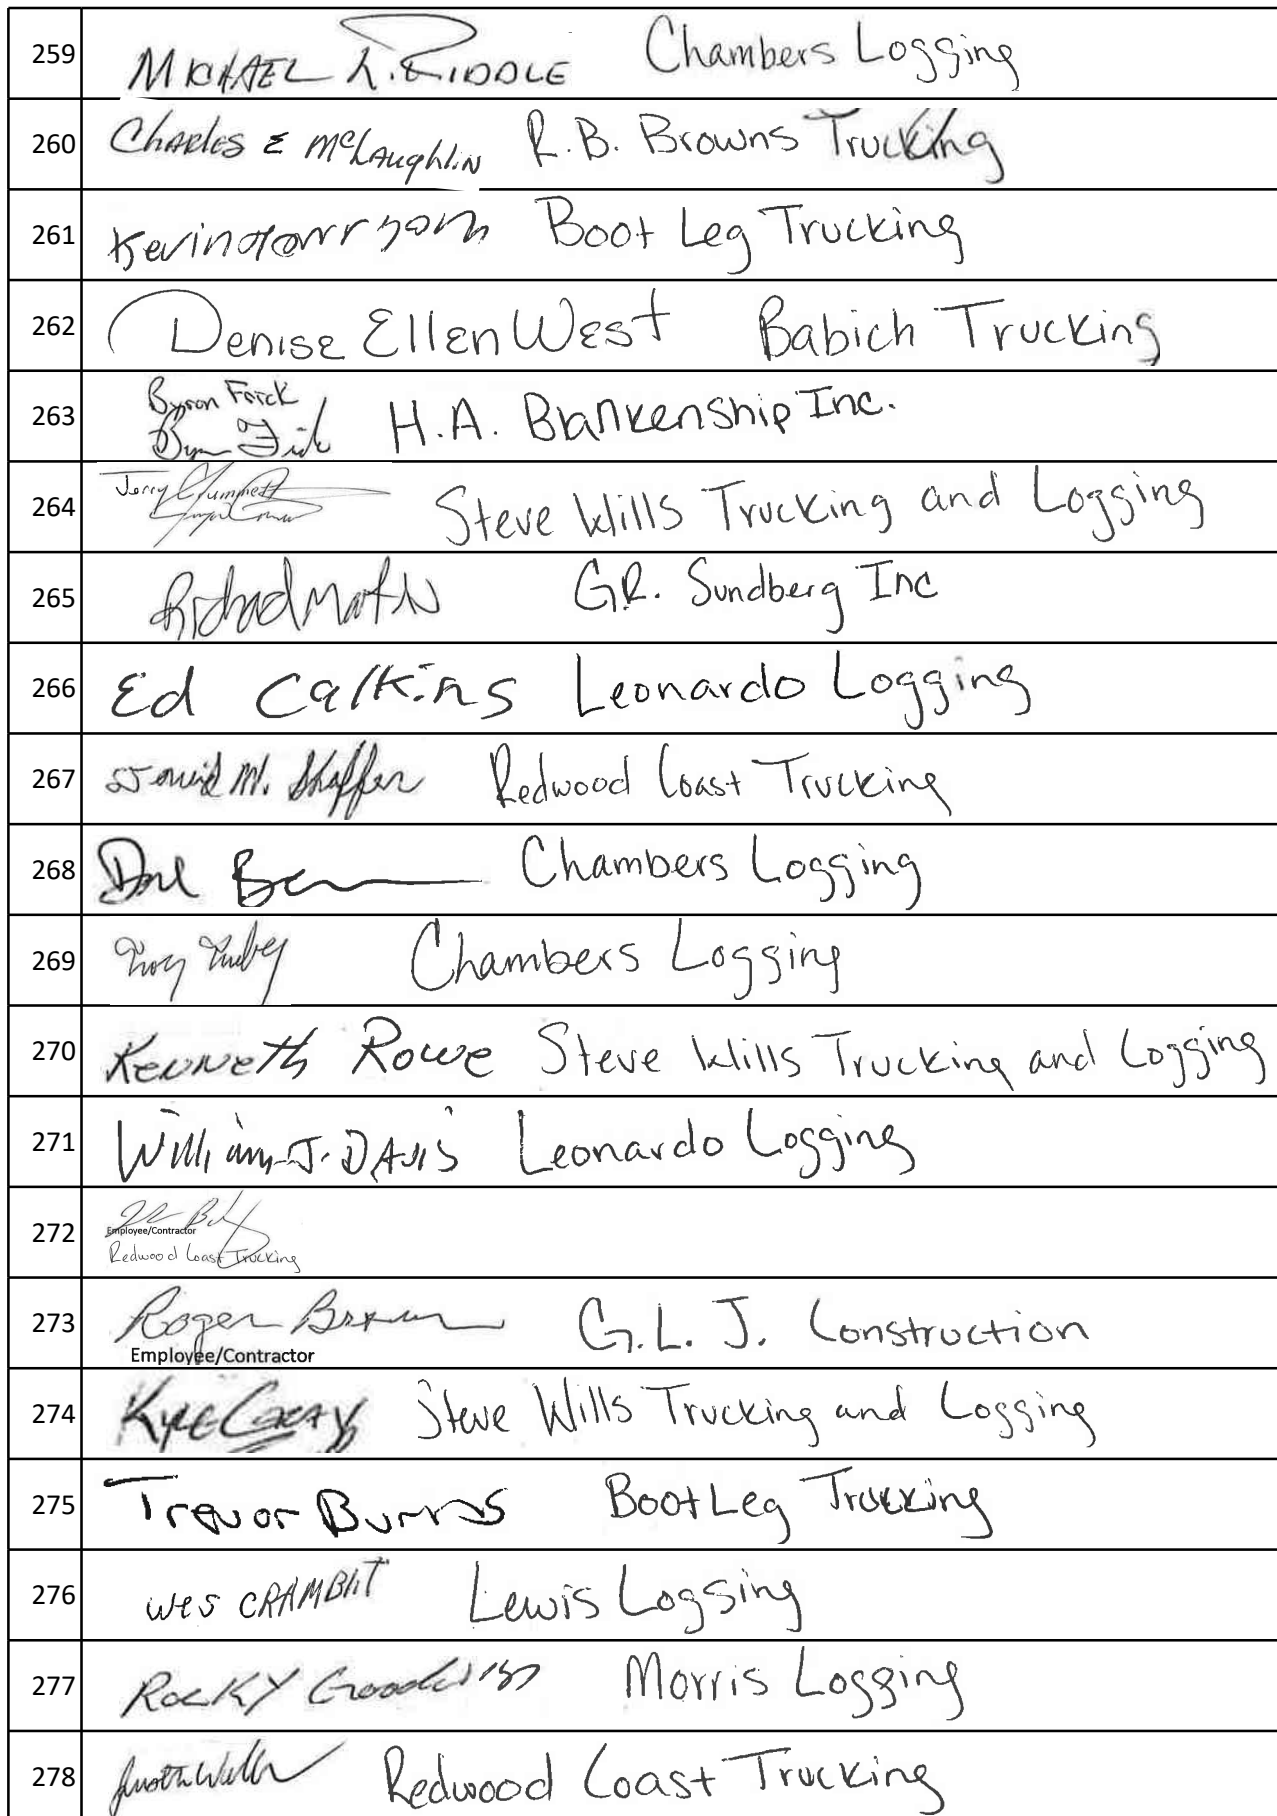 259 MICHAEL L. RIDDLE Chambers Logging
260 Charles E McLaughlin R.B. Browns Trucking
261 Kevin Boot Leg Trucking
262 Denise Ellen West Babich Trucking
263 Byron Frick H.A. Blankenship Inc.
264 Jerry Steve Wills Trucking and Logging
265 Richard Martin G.R. Sundberg Inc
266 Ed Calkins Leonardo Logging
267 David M. Shaffer Redwood Coast Trucking
268 Chambers Logging
269 Troy Chambers Logging
270 Kenneth Rowe Steve Wills Trucking and Logging
271 William J. DAVIS Leonardo Logging
272
Employee/Contractor
Redwood Coast Trucking
273 Roger Brown G.L.J. Construction
Employee/Contractor
274 Kyle Steve Wills Trucking and Logging
275 Trevor Burns Boot Leg Trucking
276 Wes CRAMBLIT Lewis Logging
277 ROCKY Morris Logging
278 Redwood Coast Trucking